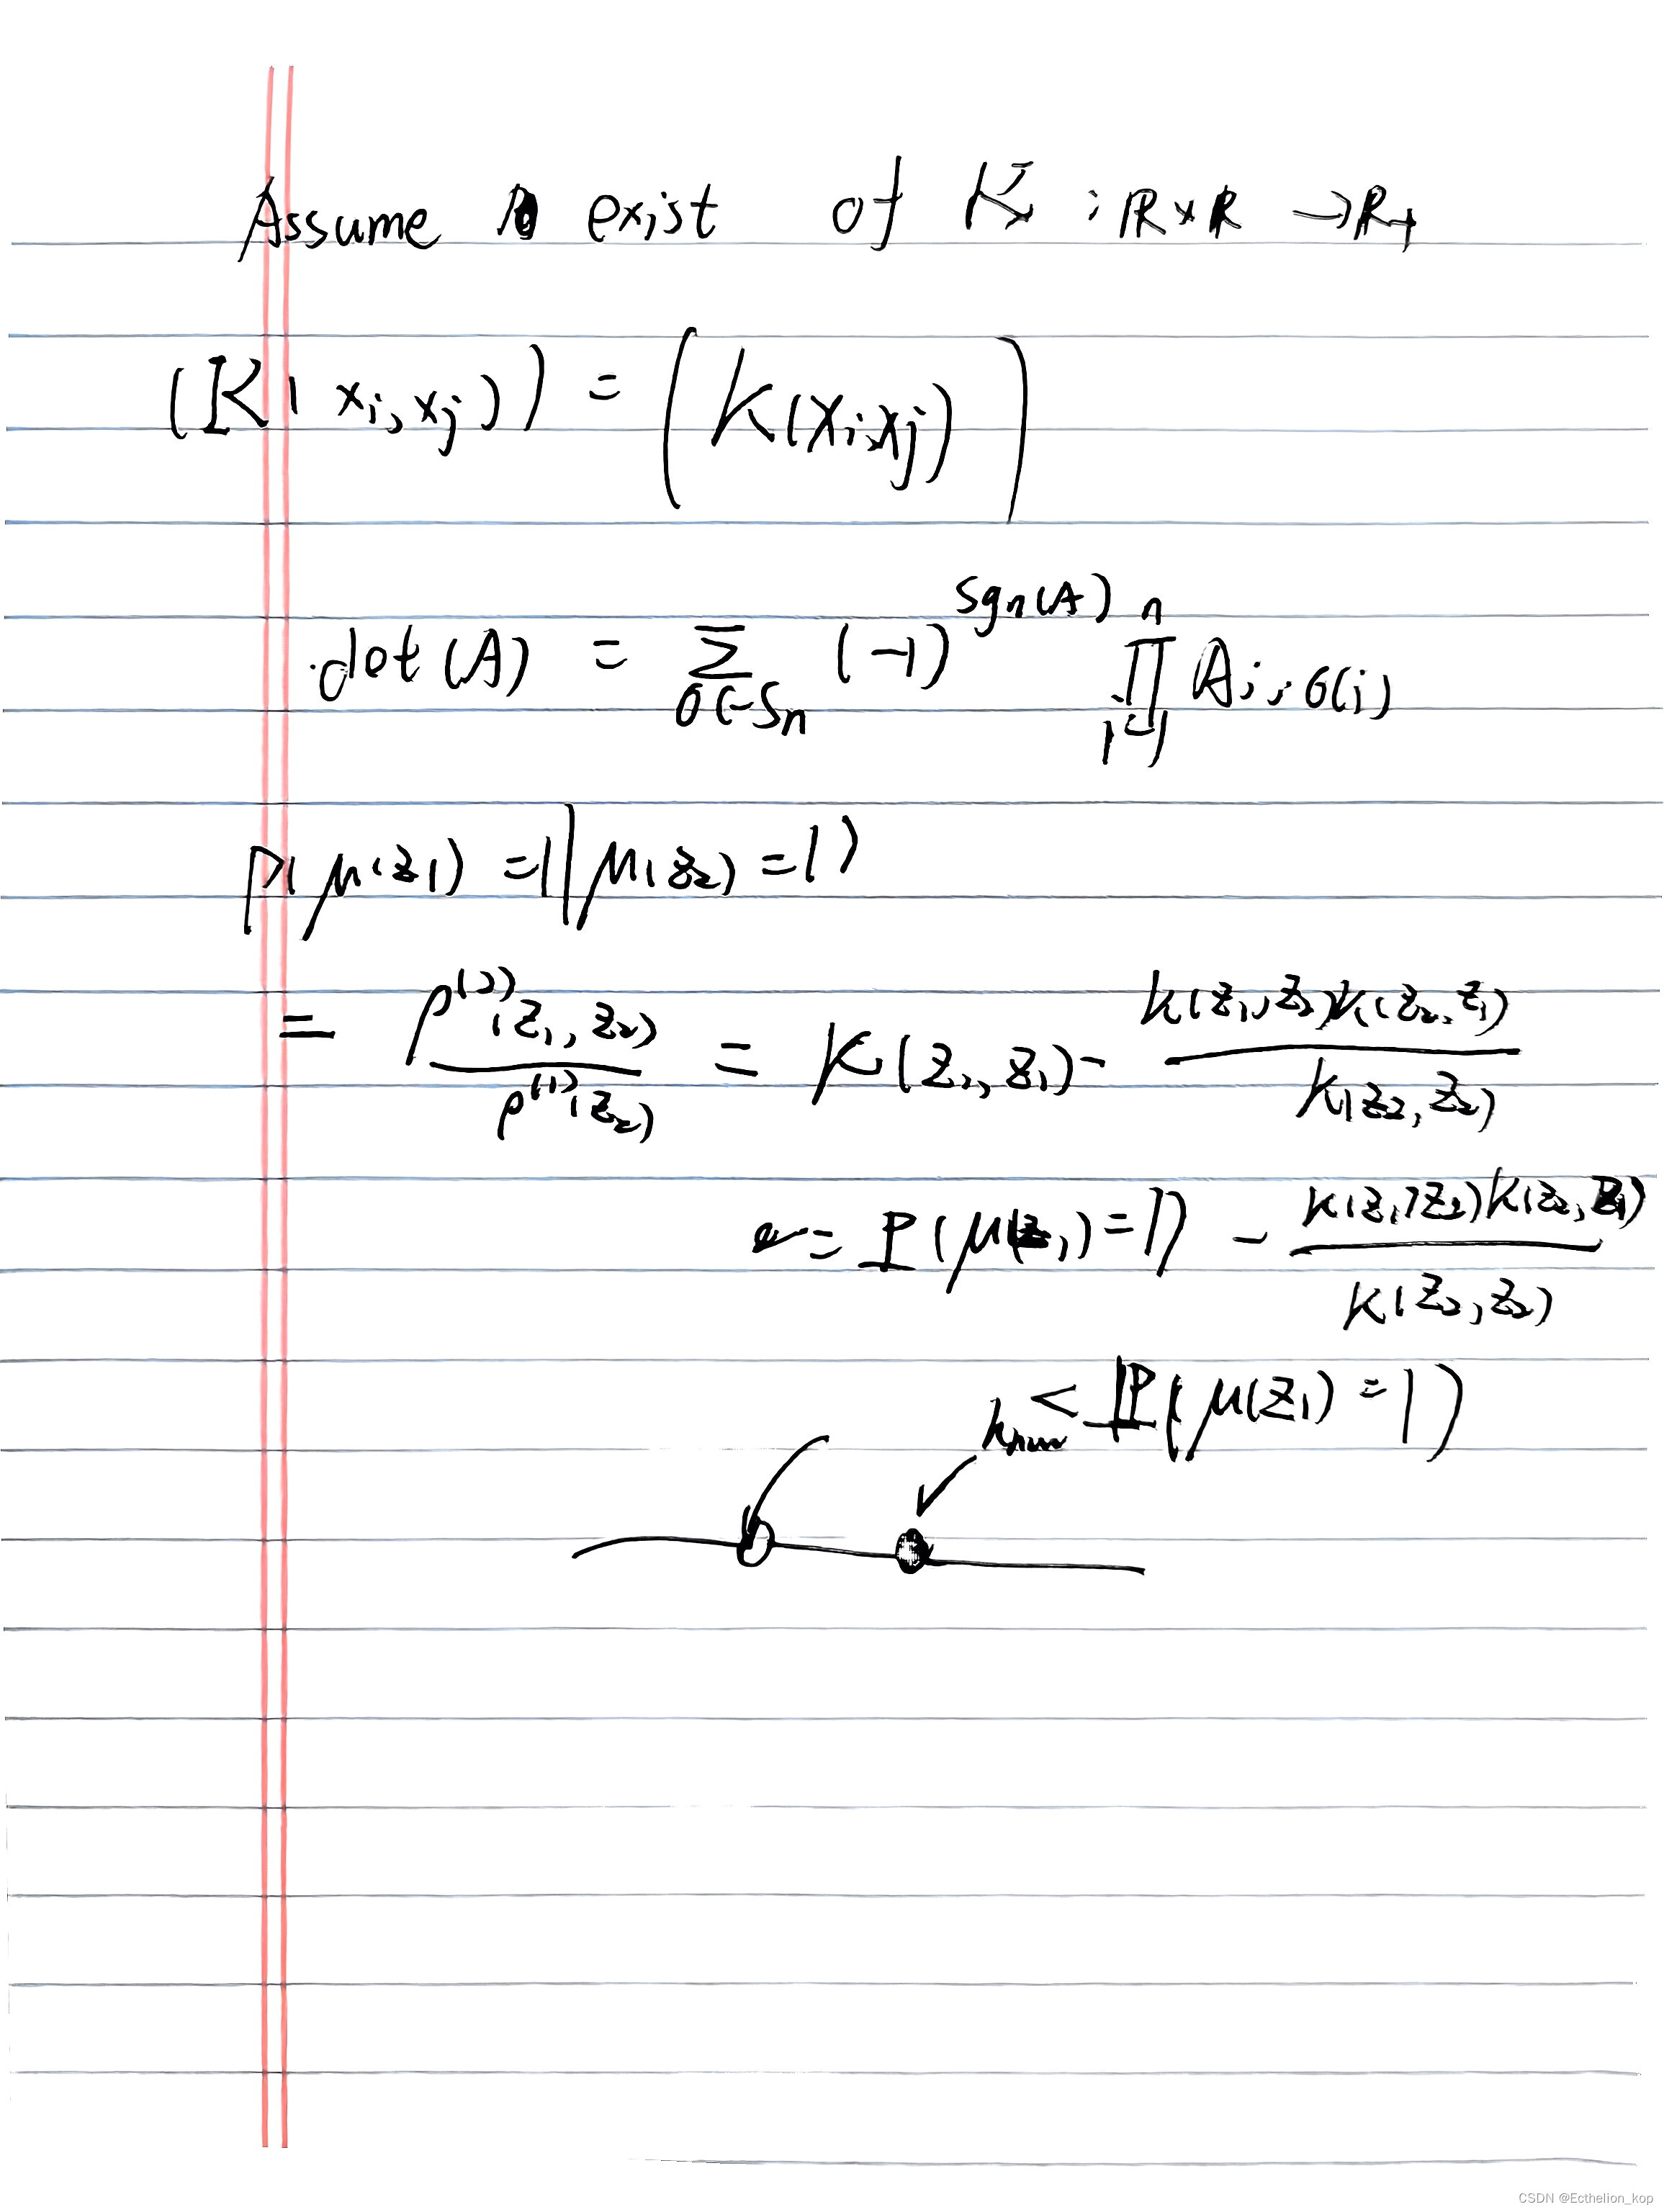 Assume exist of K : ℝ×ℝ → ℝ₊
(K(xᵢ,xⱼ)) = (K(xᵢ,xⱼ))
det(A) = Σ_{σ∈Sₙ} (-1)^{sgn(A)} ∏_{i=1}^{n} A_{i,σ(i)}
P(μ(z₁) =1|μ(z₂) =1)
= ρ⁽²⁾(z₁, z₂) / ρ⁽¹⁾(z₂) = K(z₁, z₁) - K(z₁,z₂)K(z₂,z₁) / K(z₂,z₂)
= ℙ(μ(z₁)=1) - K(z₁,z₂)K(z₂,z₁) / K(z₂,z₂)
< ℙ(μ(z₁) =1)
CSDN @Ecthelion_kop